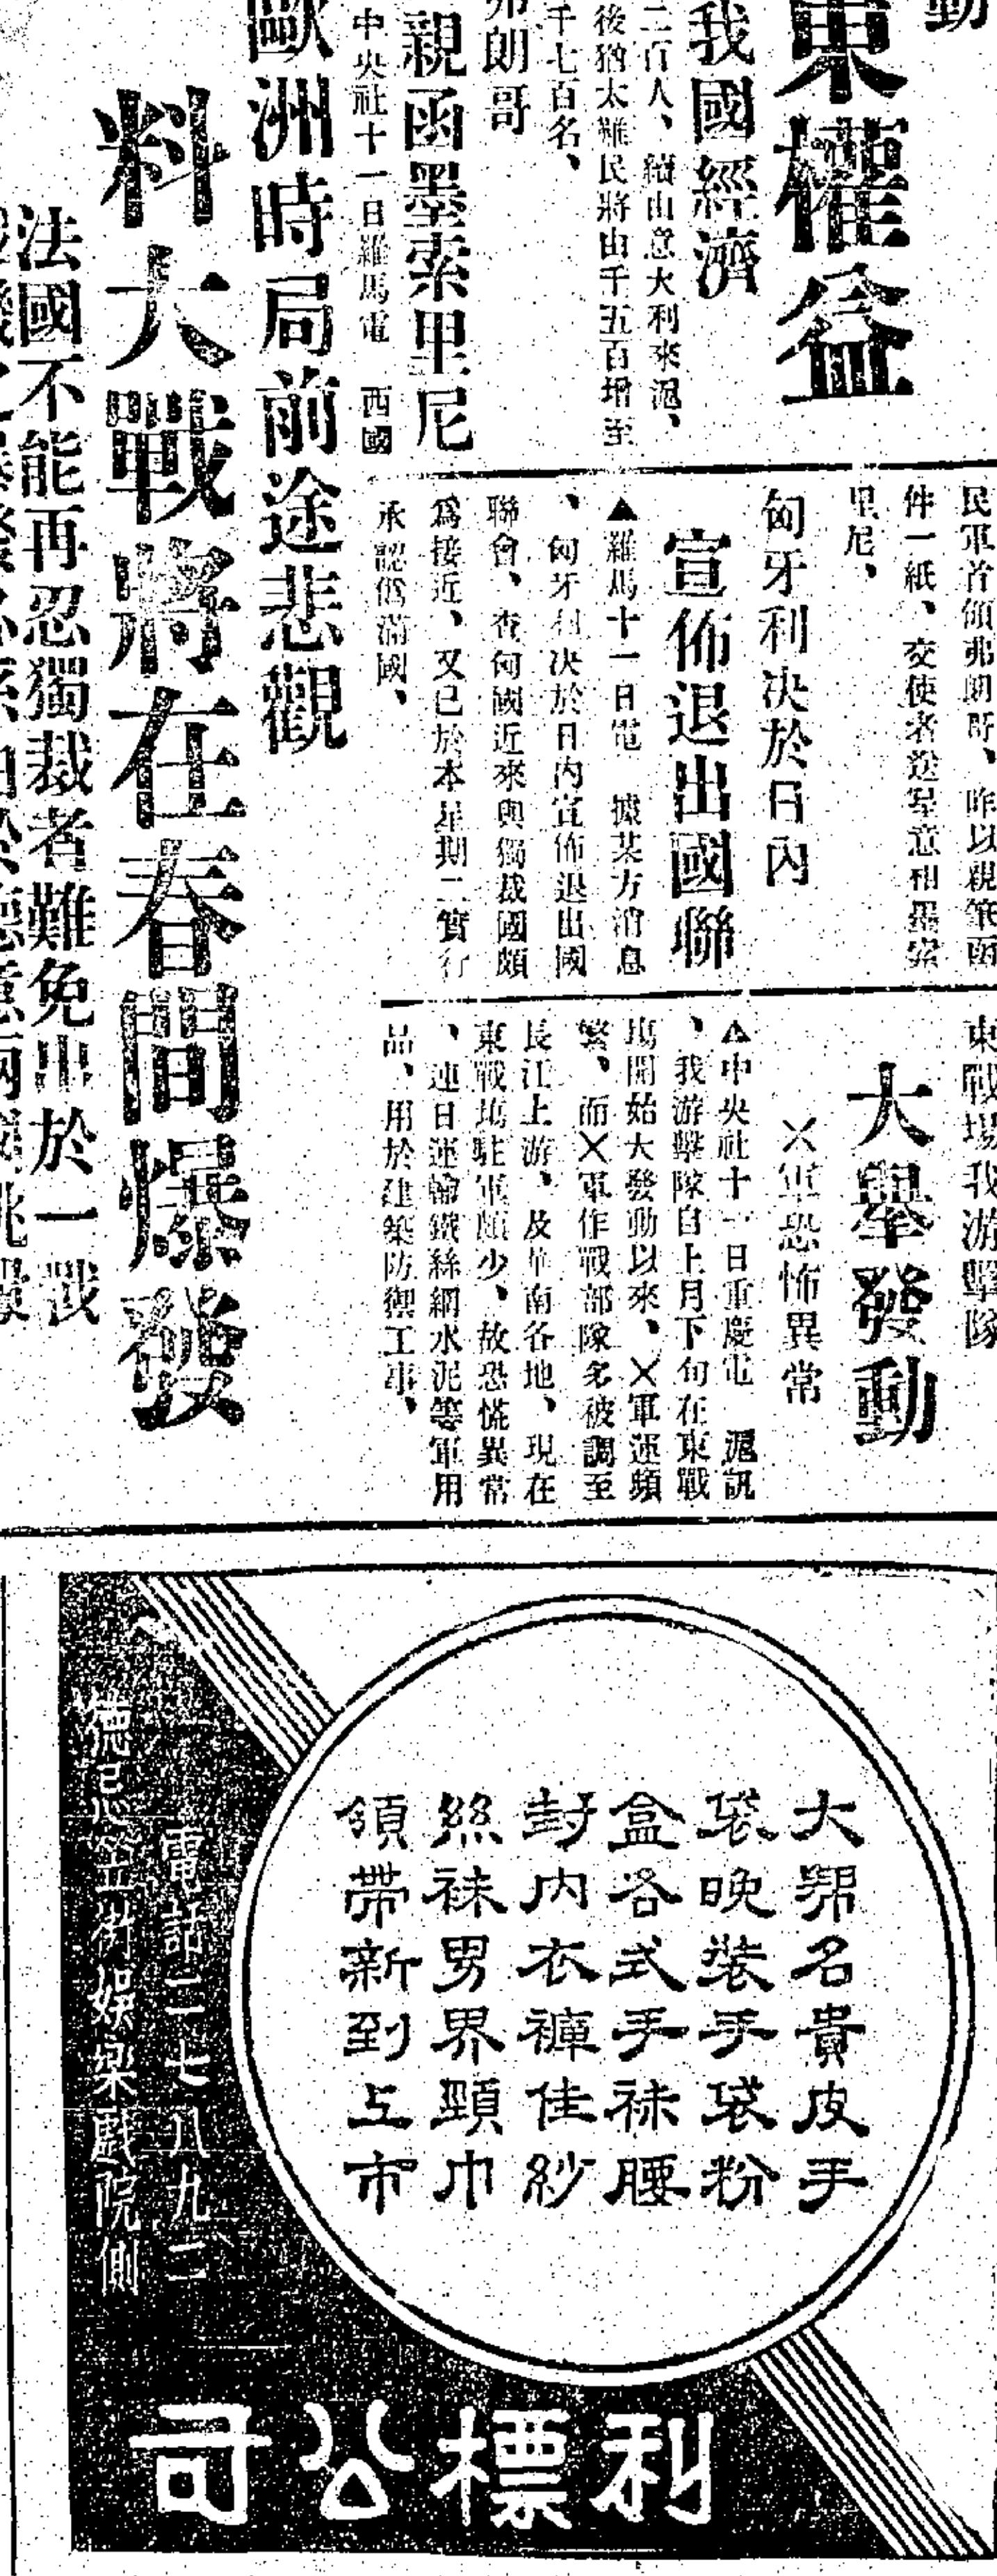 動
東權益
我國經濟
二百人、續由意大利來滬、
後猶太難民將由千五百增至
千七百名、
弗朗哥
親函墨索里尼
中央社十一日羅馬電　西國
民軍首領弗朗哥、昨以親筆函
件一紙、交使者送呈意相墨索
里尼、
匈牙利決於日內
宣佈退出國聯
▲羅馬十一日電　據某方消息
、匈牙利決於日內宣佈退出國
聯會、查匈國近來與獨裁國頗
為接近、又已於本星期二實行
承認僞滿國、
東戰場我游擊隊
大舉發動
×軍恐怖異常
▲中央社十一日重慶電　滬訊
、我游擊隊自上月下旬在東戰
塲開始大發動以來、×軍運頻
繁、而×軍作戰部隊多被調至
長江上游、及華南各地、現在
東戰塲駐軍頗少、故恐慌異常
、連日運輸鐵絲網水泥等軍用
品、用於建築防禦工事、
歐洲時局前途悲觀
料大戰將在春間爆發
法國不能再忍獨裁者難免出於一戰
大帮名貴皮手
袋晚裝手袋粉
盒各式手袜腰
封內衣褲佳紗
絲袜男界頸巾
領帶新到上市
電話二七八九三
德忌笠街娛樂戲院側
利標公司